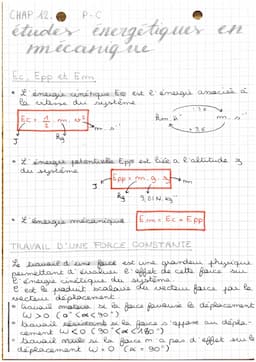 CHAP 12. P-C
études énergétiques en
mécanique
Ec, Epp et Em
• L'énergie cinétique Ec est l'énergie associée à
la vitesse du système
Ec = 1/2 . m . v²
J kg m.s⁻¹
km.h⁻¹ m.s⁻¹
÷3,6
• L'énergie potentielle Epp est liée a l'altitude z
du système
Epp = m . g . z
J kg 9,81 N.kg⁻¹ m
• L'énergie mécanique Em = Ec + Epp
TRAVAIL D'UNE FORCE CONSTANTE
Le travail d'une force est une grandeur physique
permettant d'évaluer l'effet de cette force sur
l'énergie cinétique du système.
C'est le produit scalaire du vecteur force par le
vecteur déplacement.
• travail moteur si la force favorise le déplacement
W > 0 (0° < α < 90°)
• travail résistant si la force s'oppose au dépla-
cement W < 0 (90° < α < 180°)
• travail nul si la force n'a pas d'effet sur le
déplacement W = 0 (α = 90°)